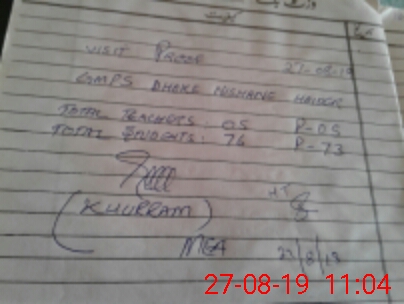 VISIT PROOF 27-08-19
GMPS DHAKE
TOTAL TEACHERS: 05 P-05
TOTAL STUDENTS: 76 P-73
(KHURRAM)
MEA 27/8/19
27-08-19 11:04